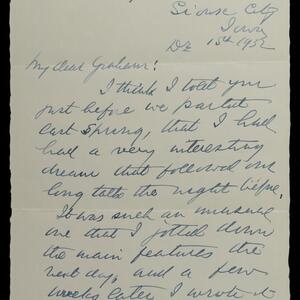 Sioux City
Iowa
Dec 15th 1952
My dear Graham:
I think I told you
just before we parted
last spring, that I had
had a very interesting
dream that followed our
long talk the night before.
It was such an unusual
one that I jotted down
the main features the
next day, and a few
weeks later I wrote it